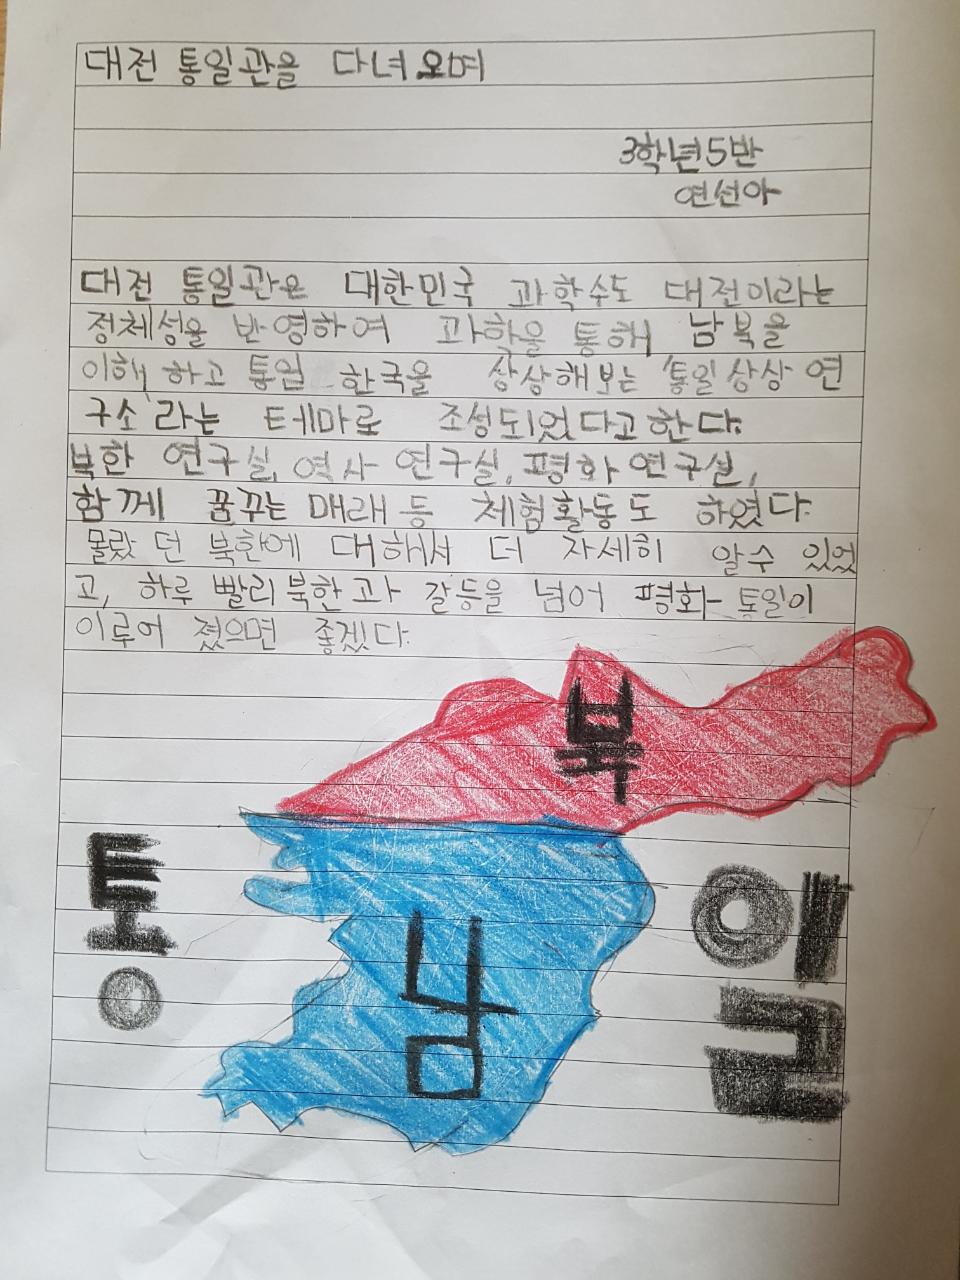 대전 통일관을 다녀오며
3학년5반
연선아
대전 통일관은 대한민국 과학수도 대전이라는
정체성을 반영하여 과학을 통해 남북을
이해하고 통일 한국을 상상해보는 '통일상상 연
구소'라는 테마로 조성되었다고한다.
북한 연구실, 역사 연구실, 평화 연구실,
함께 꿈꾸는 매래 등 체험활동도 하였다.
몰랐던 북한에 대해서 더 자세히 알수 있었
고, 하루 빨리 북한과 갈등을 넘어 평화 통일이
이루어 졌으면 좋겠다.
북
통 남 일